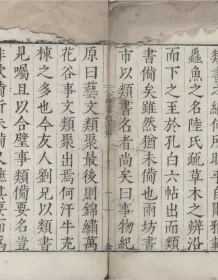 蟲魚之名陸氏疏草木之辨沿
而下之至於孔白六帖出而類
書備矣雖然猶未備也兩坊書
市以類書名者尚矣曰事物紀
原曰藝文類聚最後則錦繡萬
花谷事文類聚出焉何汗牛充
棟之多也今友人劉兄以類書
見囑且以合璧事類備要名豈
非欲備所未備